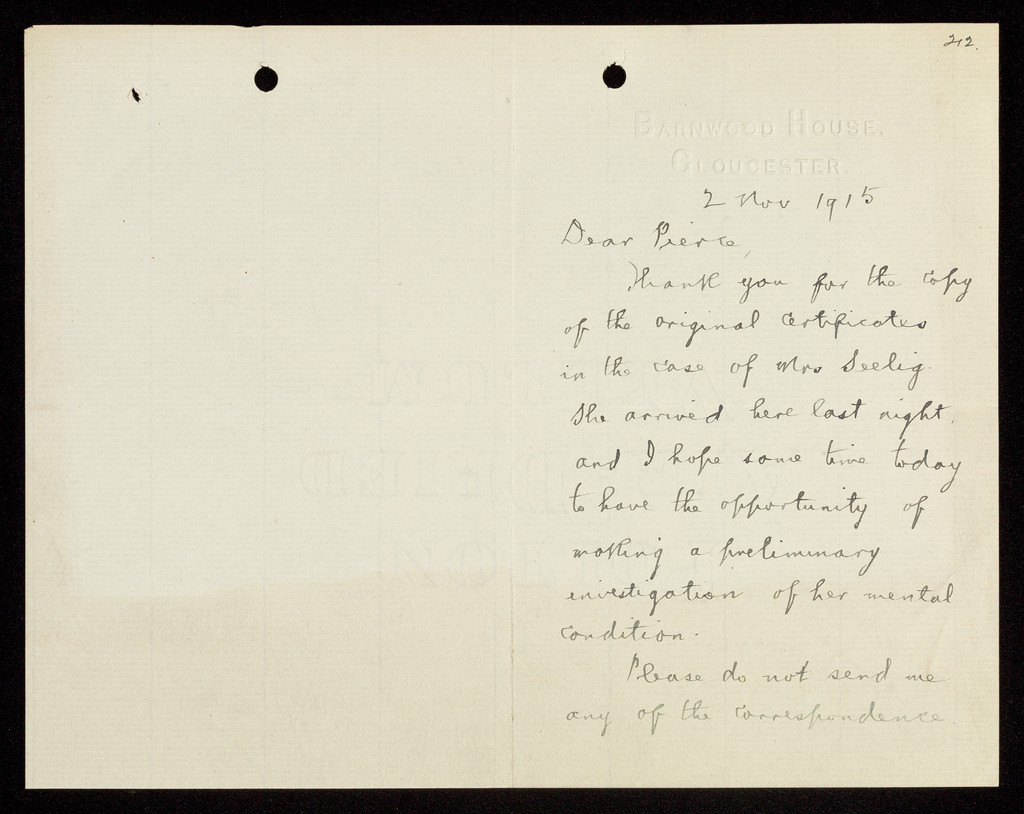 212.
BARNWOOD HOUSE,
GLOUCESTER.
2 Nov 1915
Dear Pierce,
Thank you for the copy
of the original certificates
in the case of Mrs Seelig.
She arrived here last night,
and I hope some time today
to have the opportunity of
making a preliminary
investigation of her mental
condition.
Please do not send me
any of the correspondence.